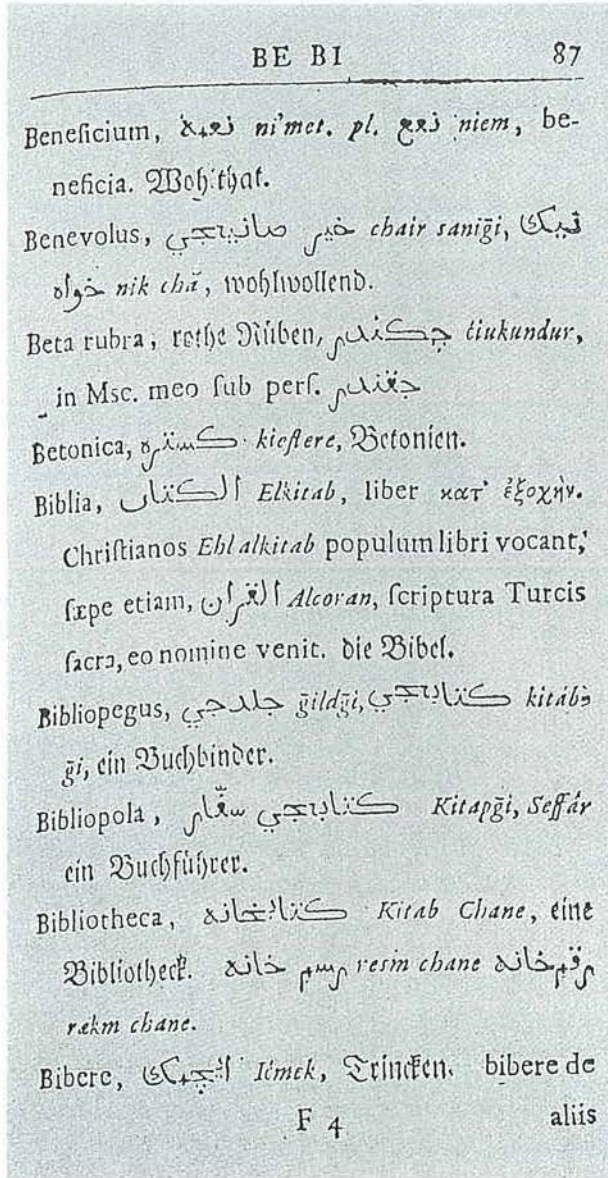 BE BI 87
Beneficium, نعمة ni'met. pl. نعم niem, be-
neficia. Wohlthat.
Benevolus, خير صانيجي chair saniḡi, نيك
خواه nik chā, wohlwollend.
Beta rubra, rothe Rüben, چكندر ćiukundur,
in Msc. meo ſub perſ. جغندر
Betonica, كستره kieſtere, Betonien.
Biblia, الكتاب Elkitab, liber κατ' ἐξοχὴν.
Chriſtianos Ehl alkitab populum libri vocant,
ſæpe etiam, القران Alcoran, ſcriptura Turcis
ſacra, eo nomine venit. die Bibel.
Bibliopegus, جلدجي ḡildḡi, كتابجي kitáb
ḡi, ein Buchbinder.
Bibliopola, كتابجي سفّار Kitapḡi, Seffâr
ein Buchführer.
Bibliotheca, كتابخانه Kitab Chane, eine
Bibliotheck. رسم خانه resim chane رقم خانه
rækm chane.
Bibere, ايچمك Ićmek, Trincken. bibere de
F 4 aliis